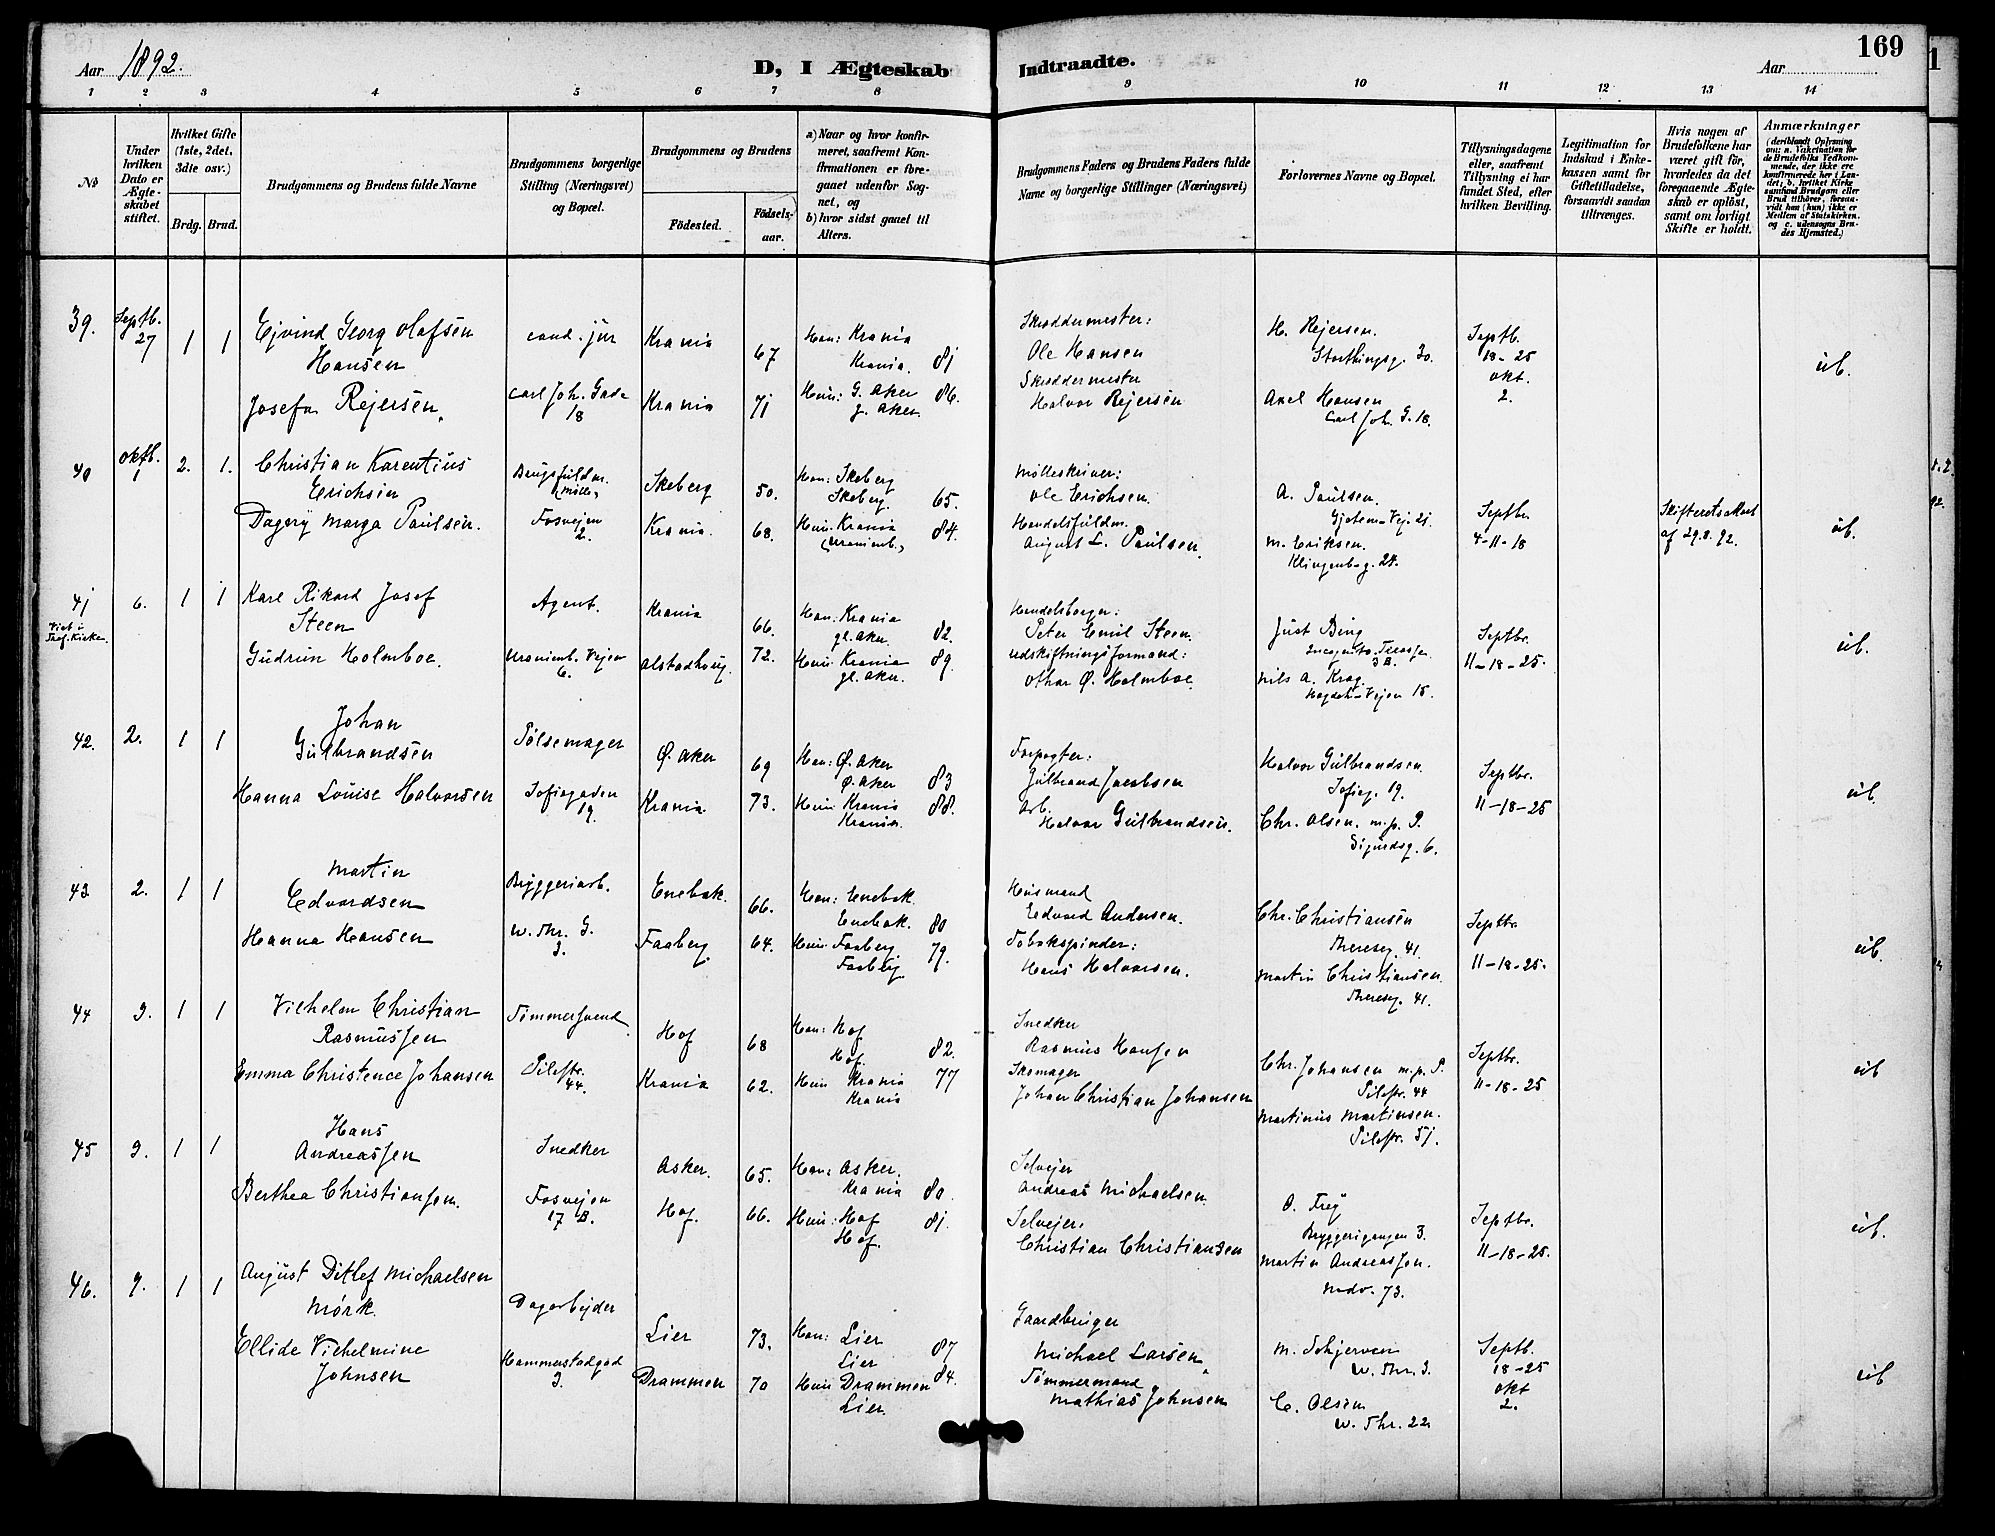 Aar 1892.
D, I Ægteskab Indtraadte.
Aar
169
1 2 3 4 5 6 7 8 9 10 11 12 13 14
No
Under hvilken Dato er Ægteskabet stiftet.
Hvilket Gifte (1ste, 2det, 3die osv.)
Brdg. Brud.
Brudgommens og Brudens fulde Navne
Brudgommens borgerlige Stilling (Næringsvei) og Bopæl.
Brudgommens og Brudens
Fødested.
Fødselsaar.
a) Naar og hvor konfirmeret, saafremt Konfirmationen er foregaaet udenfor Sognet, og
b) hvor sidst gaaet til Alters.
Brudgommens Faders og Brudens Faders fulde Navne og borgerlige Stillinger (Næringsvei)
Forlovernes Navne og Bopæl.
Tillysningsdagene eller, saafremt Tillysning ei har fundet Sted, efter hvilken Bevilling.
Legitimation for Indskud i Enkekassen samt for Giftetilladelse, forsaavidt saadan tiltrænges.
Hvis nogen af Brudefolkene har været gift før, hvorledes da det foregaaende Ægteskab er opløst, samt om lovligt Skifte er holdt.
Anmærkninger
(deriblandt Oplysning om: a. Vakcination for de Brudefolks Vedkommende, der ikke ere konfirmerede her i Landet; b. hvilket Kirkesamfund Brudgom eller Brud tilhører, forsaavidt han (hun) ikke er Medlem af Statskirken. og c. udensogns Brudes Hjemsted.)
39. Septb. 27 1 1
Ejvind Georg Olafsen
Hansen
cand. jur
Krania 67
Han: Krania
Krania. 81
Skræddermester:
Ole Hansen
H. Rejersen.
Storthingsg. 20.
Septb.
18-25
okt.
2.
ub.
Josefa Rejersen.
Carl Joh. Gade
18
Krania 71
Hun: G. Aker
g. aker. 86.
Skræddermester
Halvor Rejersen
Axel Hansen
Carl Joh. G. 18.
40 Oktb. 1 2. 1.
Christian Karentius
Erichsen
Brugsfuldm.
(Mølle)
Skeberg 50.
Han: Skeberg
Skeberg. 65.
Mølleskriver:
Ole Erichsen.
A. Paulsen.
Septbr.
4-11-18
Skifterets Attest
af 29.8.92.
ub.
Dagny Marga Paulsen.
Fosvejen
2.
Krania. 68.
Hun: Krania
(Uranienb.) 84.
Handelsfuldm.
August L. Paulsen.
M. Eriksen.
Klingenb.g. 24.
41 6. 1 1
Viet i
Tref. Kirke.
Karl Rikard Josef
Steen
Agent.
Krania 66.
Han: Krania
gl. aker. 82.
Handelsborger:
Peter Emil Steen.
Just Bing
Incognito Terasse
3 B.
Septbr.
11-18-25.
ub.
Gudrun Holmboe.
Uranienb. Vejen
6.
Alstadhoug. 72.
Hun: Krania
gl. aker. 89.
Udskiftningsformand:
Othar Ø. Holmboe
Nils A. Krag.
Hegdeh.-Vejen 15.
42. 2. 1 1
Johan
Gulbrandsen
Pølsemager
Ø. Aker 69
Han: Ø. Aker
Ø. aker 83
Forpagter:
Gulbrand Jacobsen
Halvor Gulbrandsen.
Sofieg. 19.
Septbr.
11-18-25
ub.
Hanna Louise Halvorsen
Sofiegaden
19.
Krania 73.
Hun: Krania
Krania. 88.
Arb.
Halvor Gulbrandsen.
Chr. Olsen. m.p. P.
Sigurdsg. 6.
43 2. 1 1
Martin
Edvardsen
Bryggeriarb.
Enebak. 66.
Han: Enebak.
Enebak. 80
Husmand
Edvard Andersen.
Chr. Christiansen
Theresg. 41.
Septbr.
11-18-25.
ub.
Hanna Hansen
W. Thr. G.
3.
Faaberg. 64.
Hun: Faaberg
Faaberg 79.
Tobakspinder:
Hans Halvorsen.
Martin Christiansen.
Theresg. 41.
44 9. 1 1
Vilhelm Christian
Rasmussen
Tømmersvend.
Hof 68
Han: Hof
Hof. 82.
Snedker
Rasmus Hansen
Chr. Johansen m.p. P.
Pilestr. 44
Septbr.
11-18-25
ub
Emma Christence Johansen
Pilestr.
44.
Krania 62.
Hun Krania
Krania 77
Skomager
Johan Christian Johansen
Martinus Martinsen.
Pilestr. 51.
45 9. 1 1
Hans
Andreassen
Snedker
Asker. 65.
Han: Asker.
Krania 80.
Selvejer
Andreas Michaelsen.
O. Frey
Bryggerigangen 3.
Septbr.
11-18-25.
ub.
Berthea Christiansen.
Fosvejen
17 B.
Hof. 66.
Hun: Hof
Hof. 81.
Selvejer.
Christian Christiansen
Martin Andreassen.
Medv. 73.
46. 9. 1 1
August Ditlef Michaelsen
Mørk.
Dagarbejder
Lier 73.
Han: Lier
Lier 87
Gaardbruger
Michael Larsen.
M. Schjerven
W. Thr. 3.
Septb.
18-25
okt
2.
ub
Ellide Vilhelmine
Johnsen
Hammerstadgad
3.
Drammen 70
Hun Drammen
Lier. 84.
Tømmermand
Mathias Johnsen
C. Olsen
W. Thr. 22